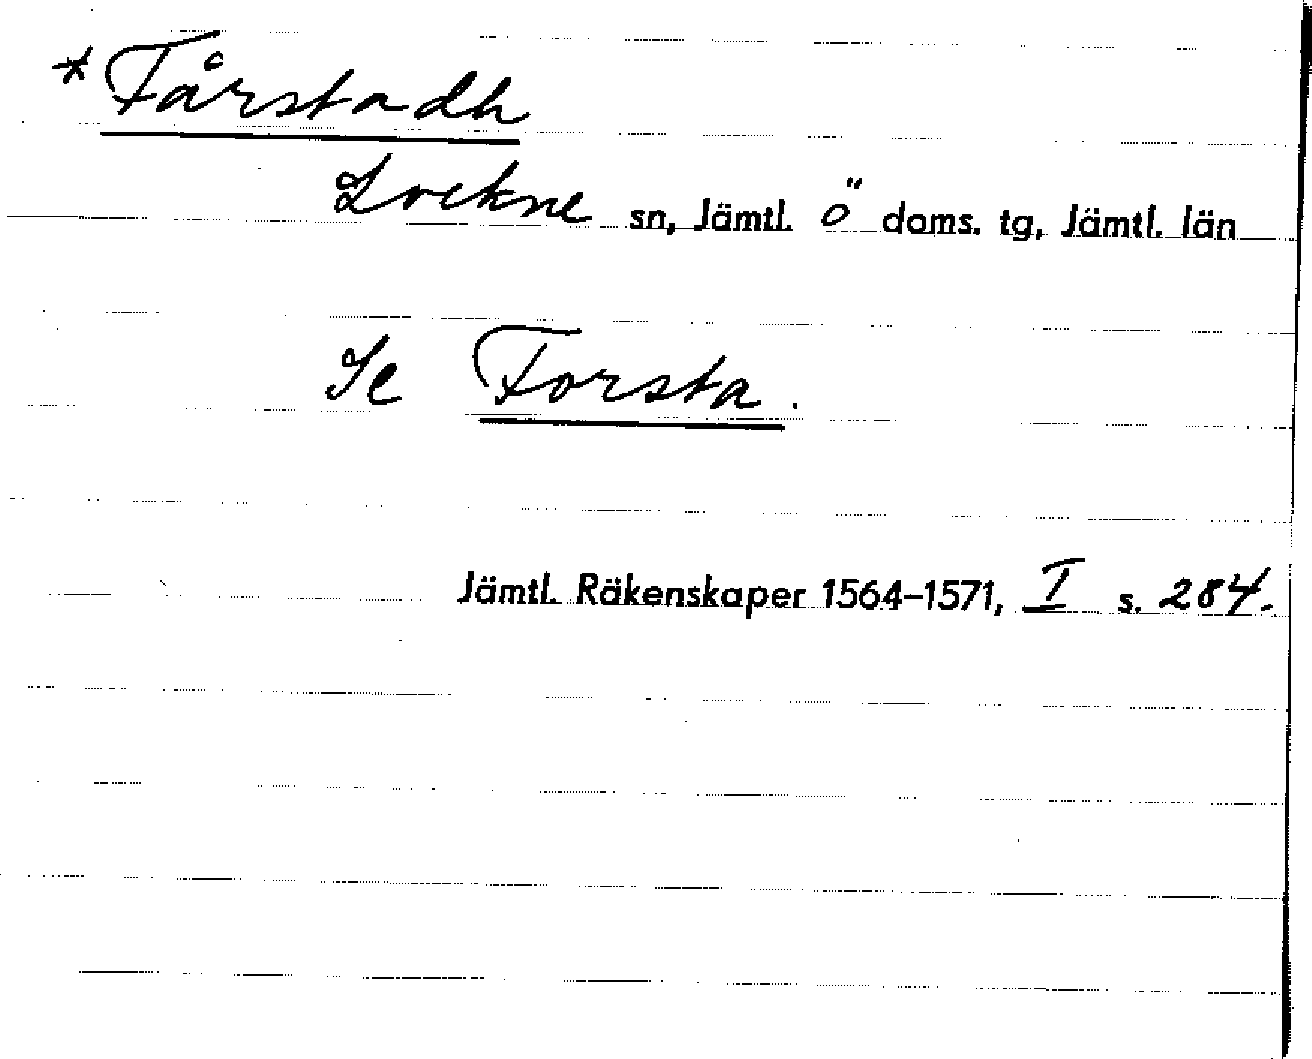 * Fårstadh
Lockne sn, Jämtl. Ö doms. tg, Jämtl. län
Se Forsta.
Jämtl. Räkenskaper 1564–1571, I s. 284.